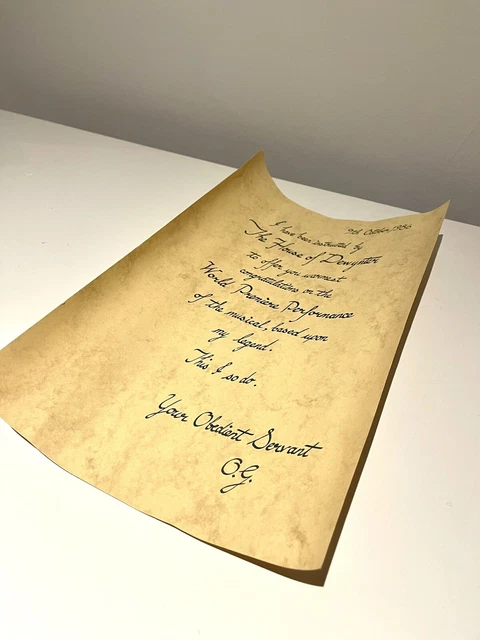 9th October, 1986
I have been instructed by
The House of Dewynter
to offer you warmest
congratulations on the
World Premiere Performance
of the musical, based upon
my legend.
This, I so do.
Your Obedient Servant
O.G.